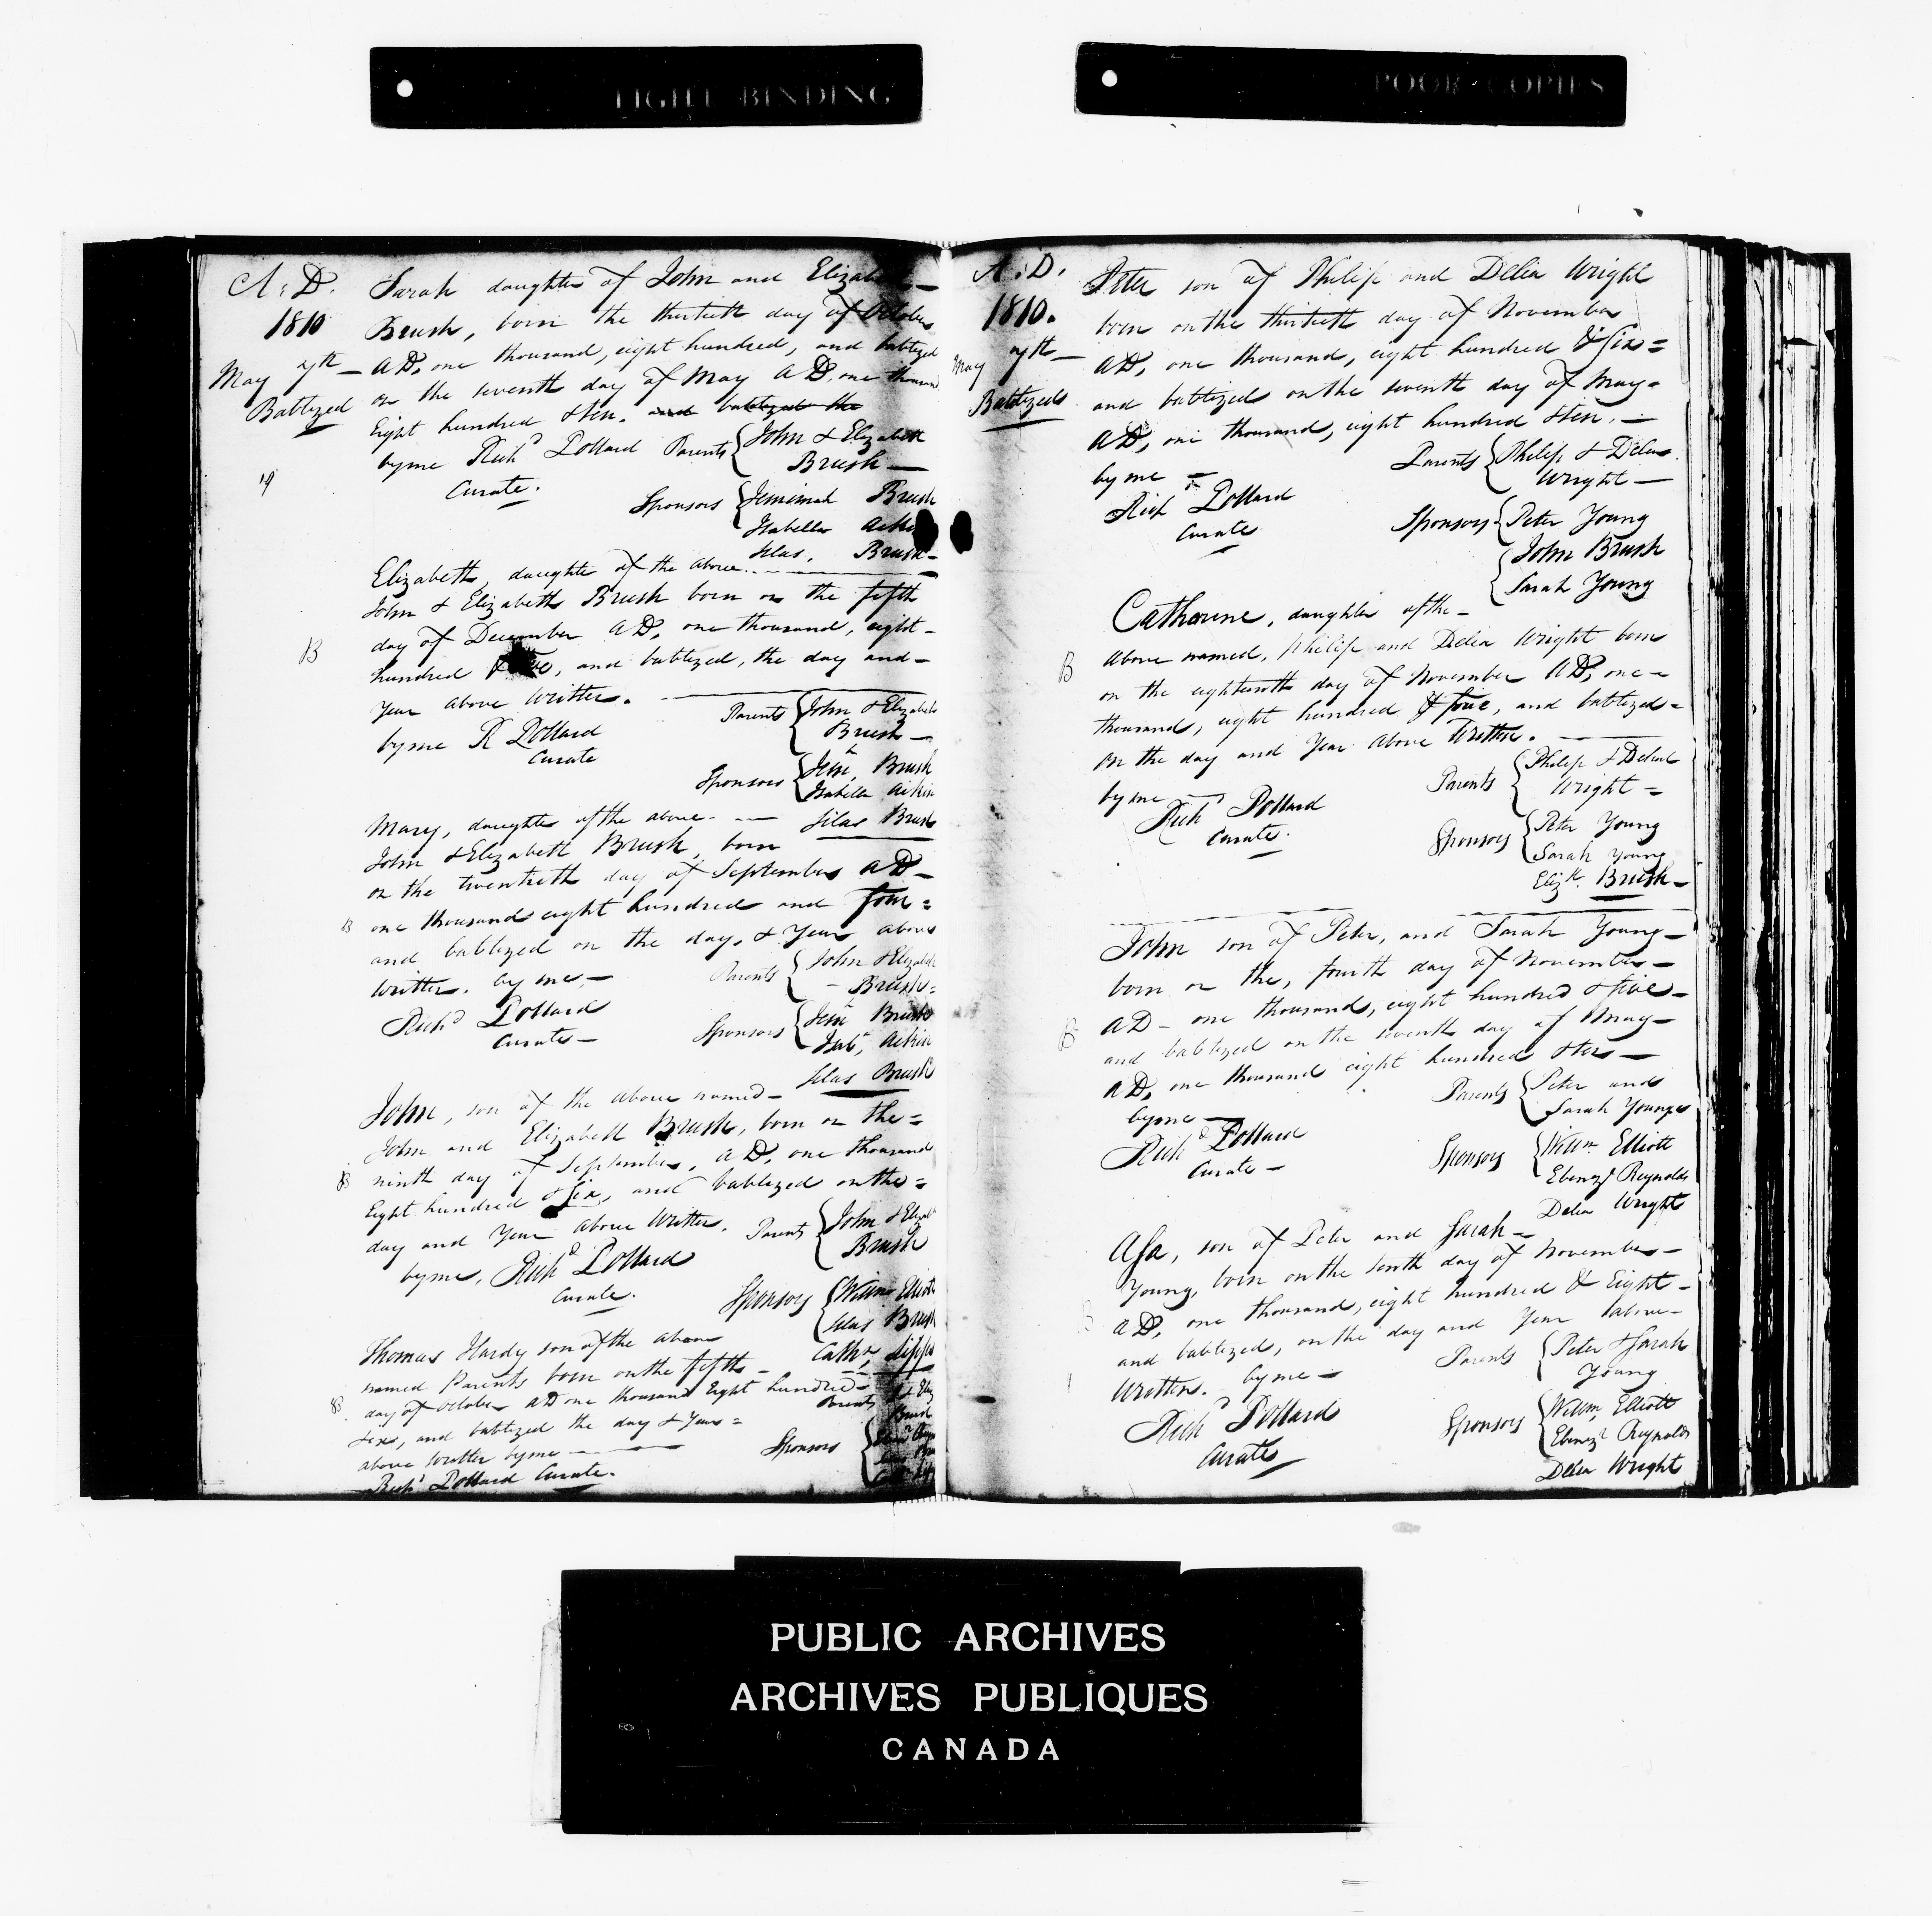 TIGHT BINDING
POOR COPIES
A:D.
1810
May 7th
Babtized
19
Sarah daughter of John and
Brush, born the thirtieth day of October
AD, one thousand, eight hundred, and babtized
on the seventh day of May AD, one thousand
Eight hundred & ten. and babtized the
by me Richd Pollard Parents John & Elizabeth
Brush
Curate.
Sponsors Jemimah Brush
Isabella
Silas. Brush
Elizabeth, daughter of the above
John & Elizabeth Brush born on the fifth
B
day of December AD, one thousand, eight
hundred and babtized, the day and
Year above written.
by me R Pollard Parents John & Elizabeth
Brush
Curate
Sponsors Jemh Brush
Isabella Aikin
Silas Brush
Mary, daughter of the above
John & Elizabeth Brush, born
on the twentieth day of September AD
B
one thousand eight hundred and four
and babtized on the day, & Year above
written. by me, Parents John & Elizabeth
Brush
Richd Pollard
Curate
Sponsors Jemh Brush
Isabl Aikin
Silas Brush
John, son of the above named
John and Elizabeth Brush, born on the
ninth day of September, AD, one thousand
B
Eight hundred & Six, and babtized on the
day and Year above Written. Parents John &
Brush
by me, Richd Pollard
Curate.
Sponsors Willm Elliott
Silas Brush
Cathe
Thomas Hardy son of the above
named Parents born on the fifth
day of October AD one thousand Eight hundred
B
Six, and babtized the day & Year
Parents
above written by me
Sponsors
Richd Pollard Curate.
A:D.
1810.
May 7th
Babtized
Peter son of Philip and Delia Wright
born on the thirtieth day of November
AD, one thousand, eight hundred & Six
and babtized on the seventh day of May
AD, one thousand, eight hundred & ten.
by me
Parents Philip & Delia
Wright
Richd Pollard
Curate
Sponsors Peter Young
John Brush
Sarah Young
Catharine, daughter of the
B
above named, Philip and Delia Wright born
on the eighteenth day of November AD, one
thousand, eight hundred & four, and babtized
on the day and Year above Written.
by me
Parents Philip & Delia
Wright
Richd Pollard
Curate.
Sponsors Peter Young
Sarah Young
Elizth Brush
John son of Peter, and Sarah Young
born on the, fourth day of November
B
AD one thousand, eight hundred & five
and babtized on the seventh day of May
AD, one thousand eight hundred & ten
by me
Parents Peter and
Sarah Young
Richd Pollard
Curate
Sponsors Willm Elliott
Ebenezr Reynolds
Delia Wright
Asa, son of Peter and Sarah
Young, born on the tenth day of November
B
AD, one thousand, eight hundred & Eight
and babtized, on the day and Year above
Written. by me
Parents Peter & Sarah
Young
Richd Pollard
Curate
Sponsors Willm Elliott
Ebenezr Reynolds
Delia Wright
PUBLIC ARCHIVES
ARCHIVES PUBLIQUES
CANADA